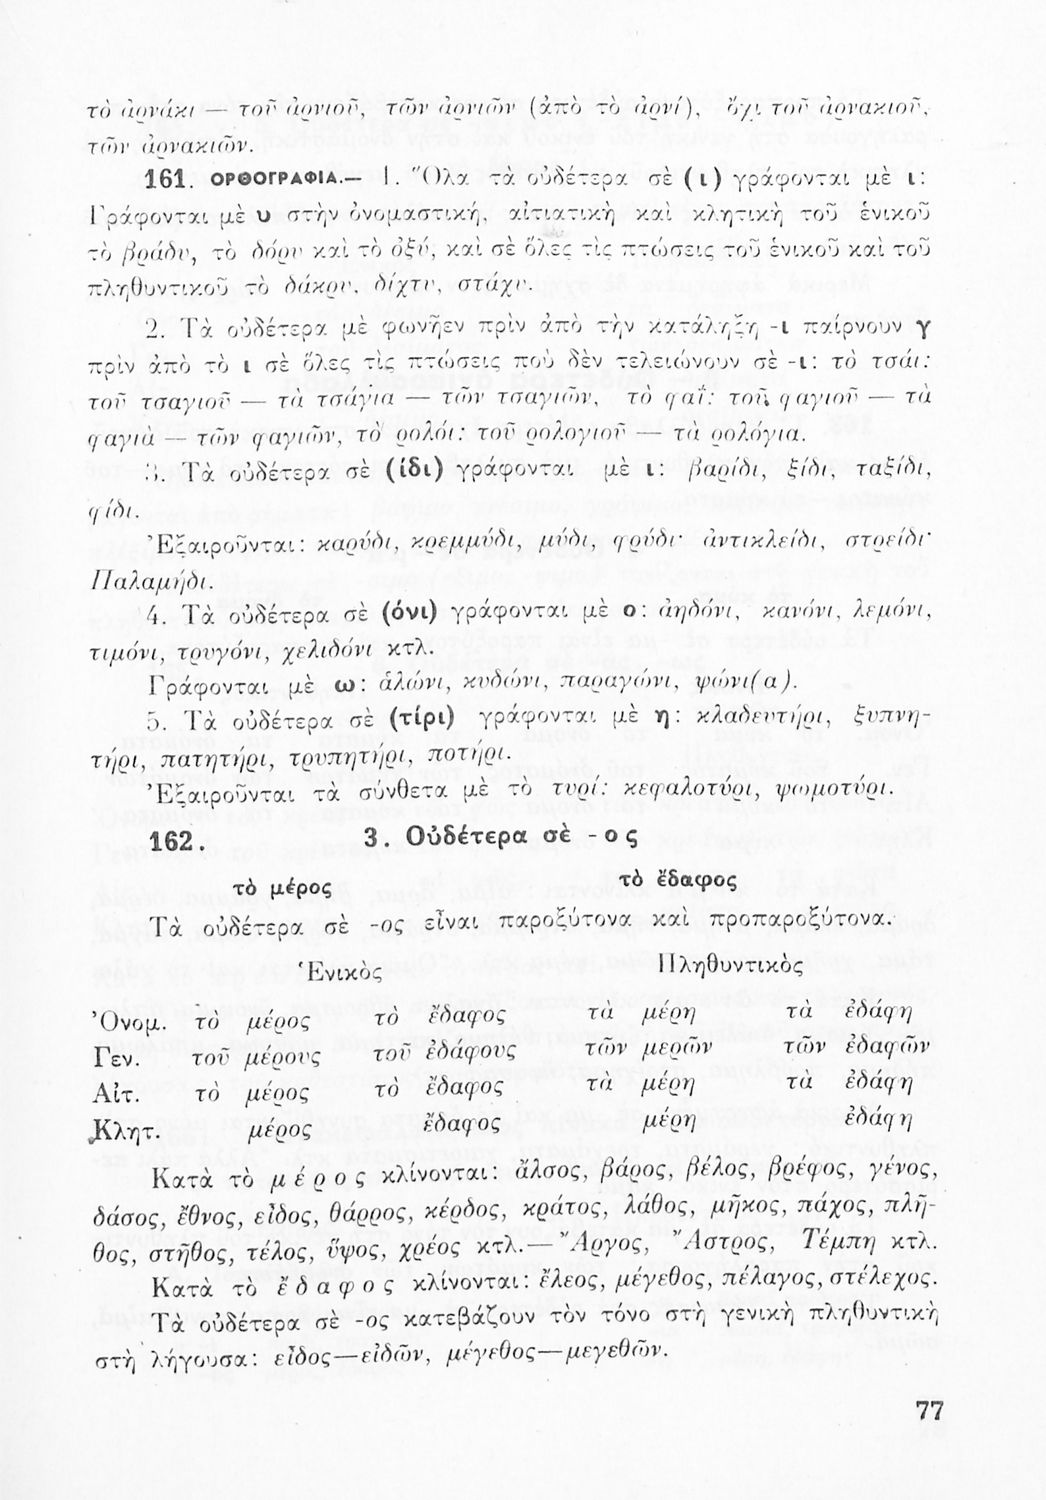 τὸ ἀρνάκι — τοῦ ἀρνιοῦ, τῶν ἀρνιῶν (ἀπὸ τὸ ἀρνί), ὄχι τοῦ ἀρνακιοῦ,
τῶν ἀρνακιῶν.
161. ΟΡΘΟΓΡΑΦΙΑ.— 1. Ὅλα τὰ οὐδέτερα σὲ (ι) γράφονται μὲ ι:
Γράφονται μὲ υ στὴν ὀνομαστική, αἰτιατικὴ καὶ κλητικὴ τοῦ ἑνικοῦ
τὸ βράδυ, τὸ δόρυ καὶ τὸ ὀξύ, καὶ σὲ ὅλες τὶς πτώσεις τοῦ ἑνικοῦ καὶ τοῦ
πληθυντικοῦ τὸ δάκρυ, δίχτυ, στάχυ.
2. Τὰ οὐδέτερα μὲ φωνῆεν πρὶν ἀπὸ τὴν κατάληξη -ι παίρνουν γ
πρὶν ἀπὸ τὸ ι σὲ ὅλες τὶς πτώσεις ποὺ δὲν τελειώνουν σὲ -ι: τὸ τσάι:
τοῦ τσαγιοῦ — τὰ τσάγια — τῶν τσαγιῶν, τὸ φαΐ: τοῦ φαγιοῦ — τὰ
φαγιὰ — τῶν φαγιῶν, τὸ ρολόι: τοῦ ρολογιοῦ — τὰ ρολόγια.
3. Τὰ οὐδέτερα σὲ (ίδι) γράφονται μὲ ι: βαρίδι, ξίδι, ταξίδι,
φίδι.
Ἐξαιροῦνται: καρύδι, κρεμμύδι, μύδι, φρύδι· ἀντικλείδι, στρείδι·
Παλαμήδι.
4. Τὰ οὐδέτερα σὲ (όνι) γράφονται μὲ ο: ἀηδόνι, κανόνι, λεμόνι,
τιμόνι, τρυγόνι, χελιδόνι κτλ.
Γράφονται μὲ ω: ἁλώνι, κυδώνι, παραγώνι, ψώνι(α).
5. Τὰ οὐδέτερα σὲ (τίρι) γράφονται μὲ η: κλαδευτήρι, ξυπνη-
τήρι, πατητήρι, τρυπητήρι, ποτήρι.
Ἐξαιροῦνται τὰ σύνθετα μὲ τὸ τυρί: κεφαλοτύρι, ψωμοτύρι.
162. 3. Οὐδέτερα σὲ -ος
τὸ μέρος τὸ ἔδαφος
Τὰ οὐδέτερα σὲ -ος εἶναι παροξύτονα καὶ προπαροξύτονα.
Ἑνικὸς Πληθυντικὸς
Ὀνομ. τὸ μέρος τὸ ἔδαφος τὰ μέρη τὰ ἐδάφη
Γεν. τοῦ μέρους τοῦ ἐδάφους τῶν μερῶν τῶν ἐδαφῶν
Αἰτ. τὸ μέρος τὸ ἔδαφος τὰ μέρη τὰ ἐδάφη
Κλητ. μέρος ἔδαφος μέρη ἐδάφη
Κατὰ τὸ μέρος κλίνονται: ἄλσος, βάρος, βέλος, βρέφος, γένος,
δάσος, ἔθνος, εἶδος, θάρρος, κέρδος, κράτος, λάθος, μῆκος, πάχος, πλῆ-
θος, στῆθος, τέλος, ὕψος, χρέος κτλ.— Ἄργος, Ἄστρος, Τέμπη κτλ.
Κατὰ τὸ ἔδαφος κλίνονται: ἔλεος, μέγεθος, πέλαγος, στέλεχος.
Τὰ οὐδέτερα σὲ -ος κατεβάζουν τὸν τόνο στὴ γενικὴ πληθυντικὴ
στὴ λήγουσα: εἶδος—εἰδῶν, μέγεθος—μεγεθῶν.
77